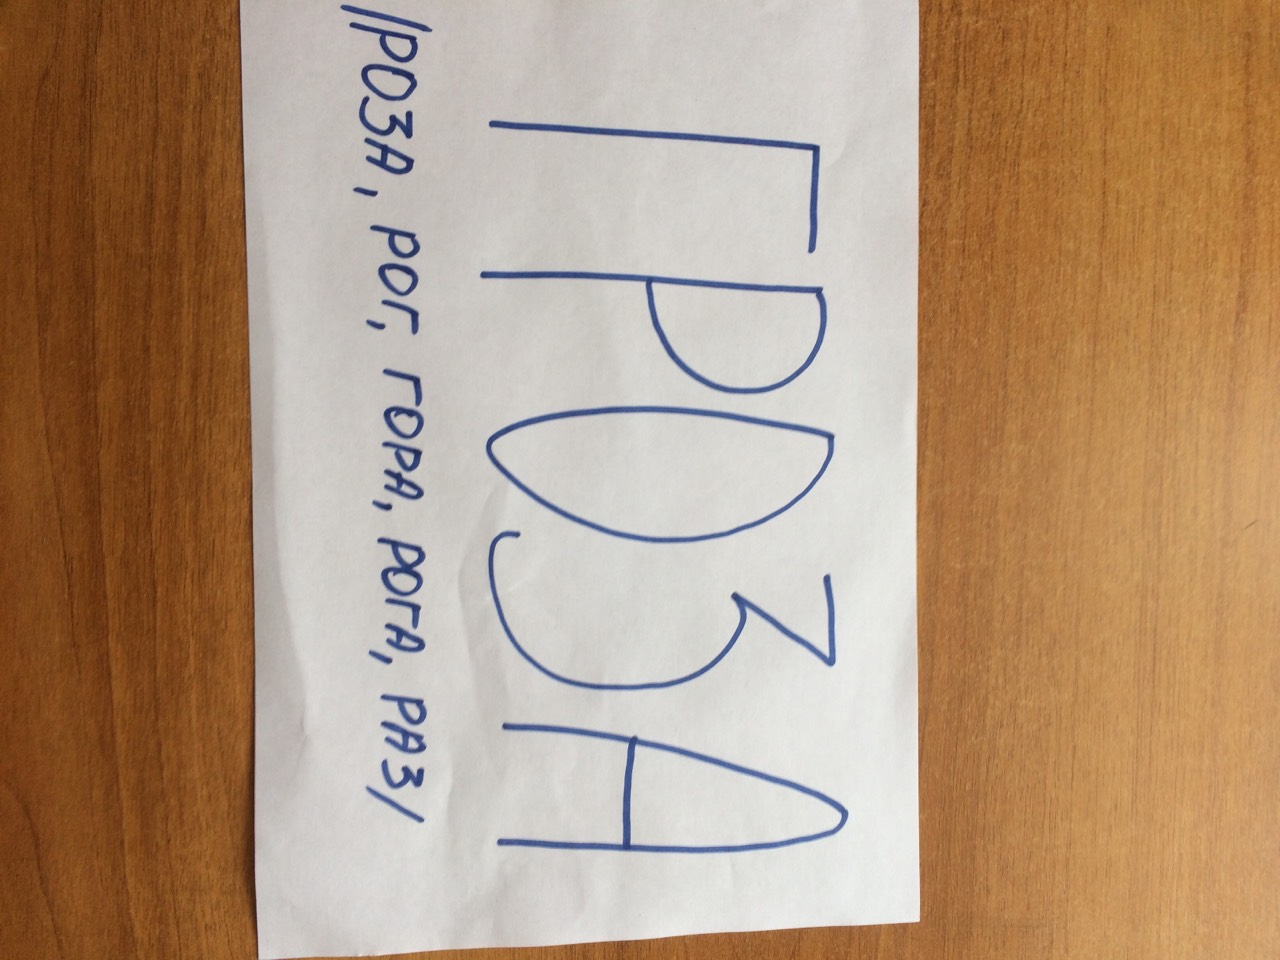 ГРОЗА
/РОЗА, РОГ, ГОРА, РОГА, РАЗ/